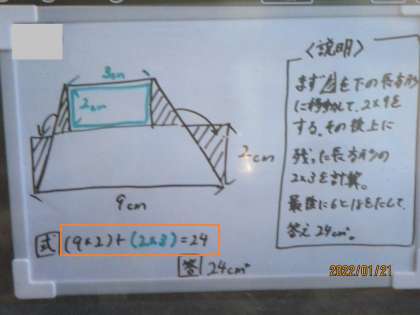 3cm
2cm
2cm
9cm
式 (9×2)+(2×3)=24
答 24cm²
〈説明〉
まず を下の長方形
に移動して、2×9を
する。その後上に
残った長方形の
2×3を計算。
最後に6と18をたして、
答え 24cm²。
2022/01/21